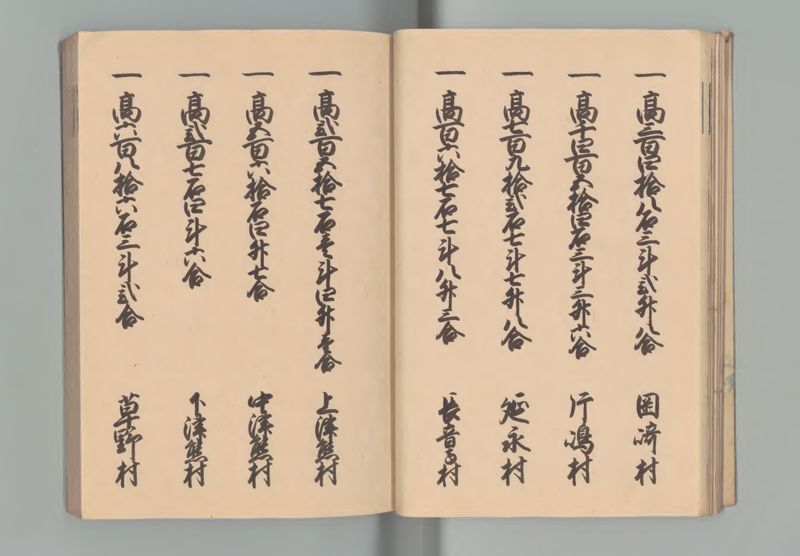 一高三百四拾八石三斗弐升八合 岡崎村
一高千四百五拾四石三斗三升六合 片嶋村
一高七百九拾弐石七斗七升八合 延永村
一高百六拾七石七斗八升三合 長音寺村
一高弐百五拾七石壱斗四升壱合 上津熊村
一高五百六拾石四升七合 中津熊村
一高弐百七石四斗六合 下津熊村
一高六百八拾六石三斗弐合 草野村